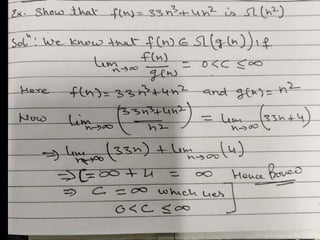 Ex. Show that f(n) = 33n³+4n² is Ω(n²)
Solⁿ: We know that f(n) ∈ Ω(g(n)) if
lim n→∞ f(n)/g(n) = 0<C≤∞
Here f(n) = 33n³+4n² and g(n) = n²
Now lim n→∞ (33n³+4n²/n²) = lim n→∞ (33n+4)
⇒ lim n→∞ (33n) + lim n→∞ (4)
⇒ C = ∞ + 4 = ∞ Hence Proved
⇒ C = ∞ which lies
0<C≤∞